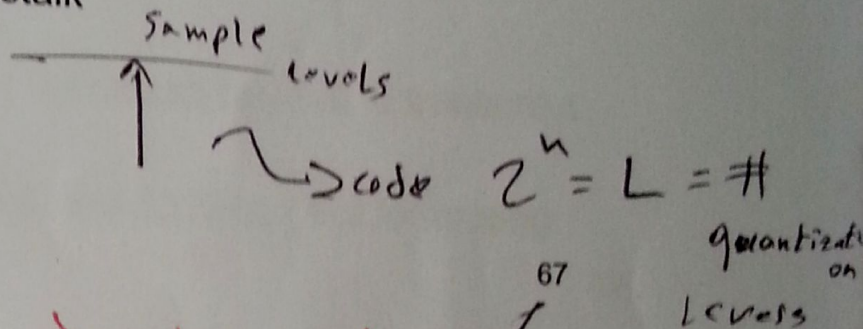 sample
levels
code 2^n = L = #
quantizati
on
67
levels